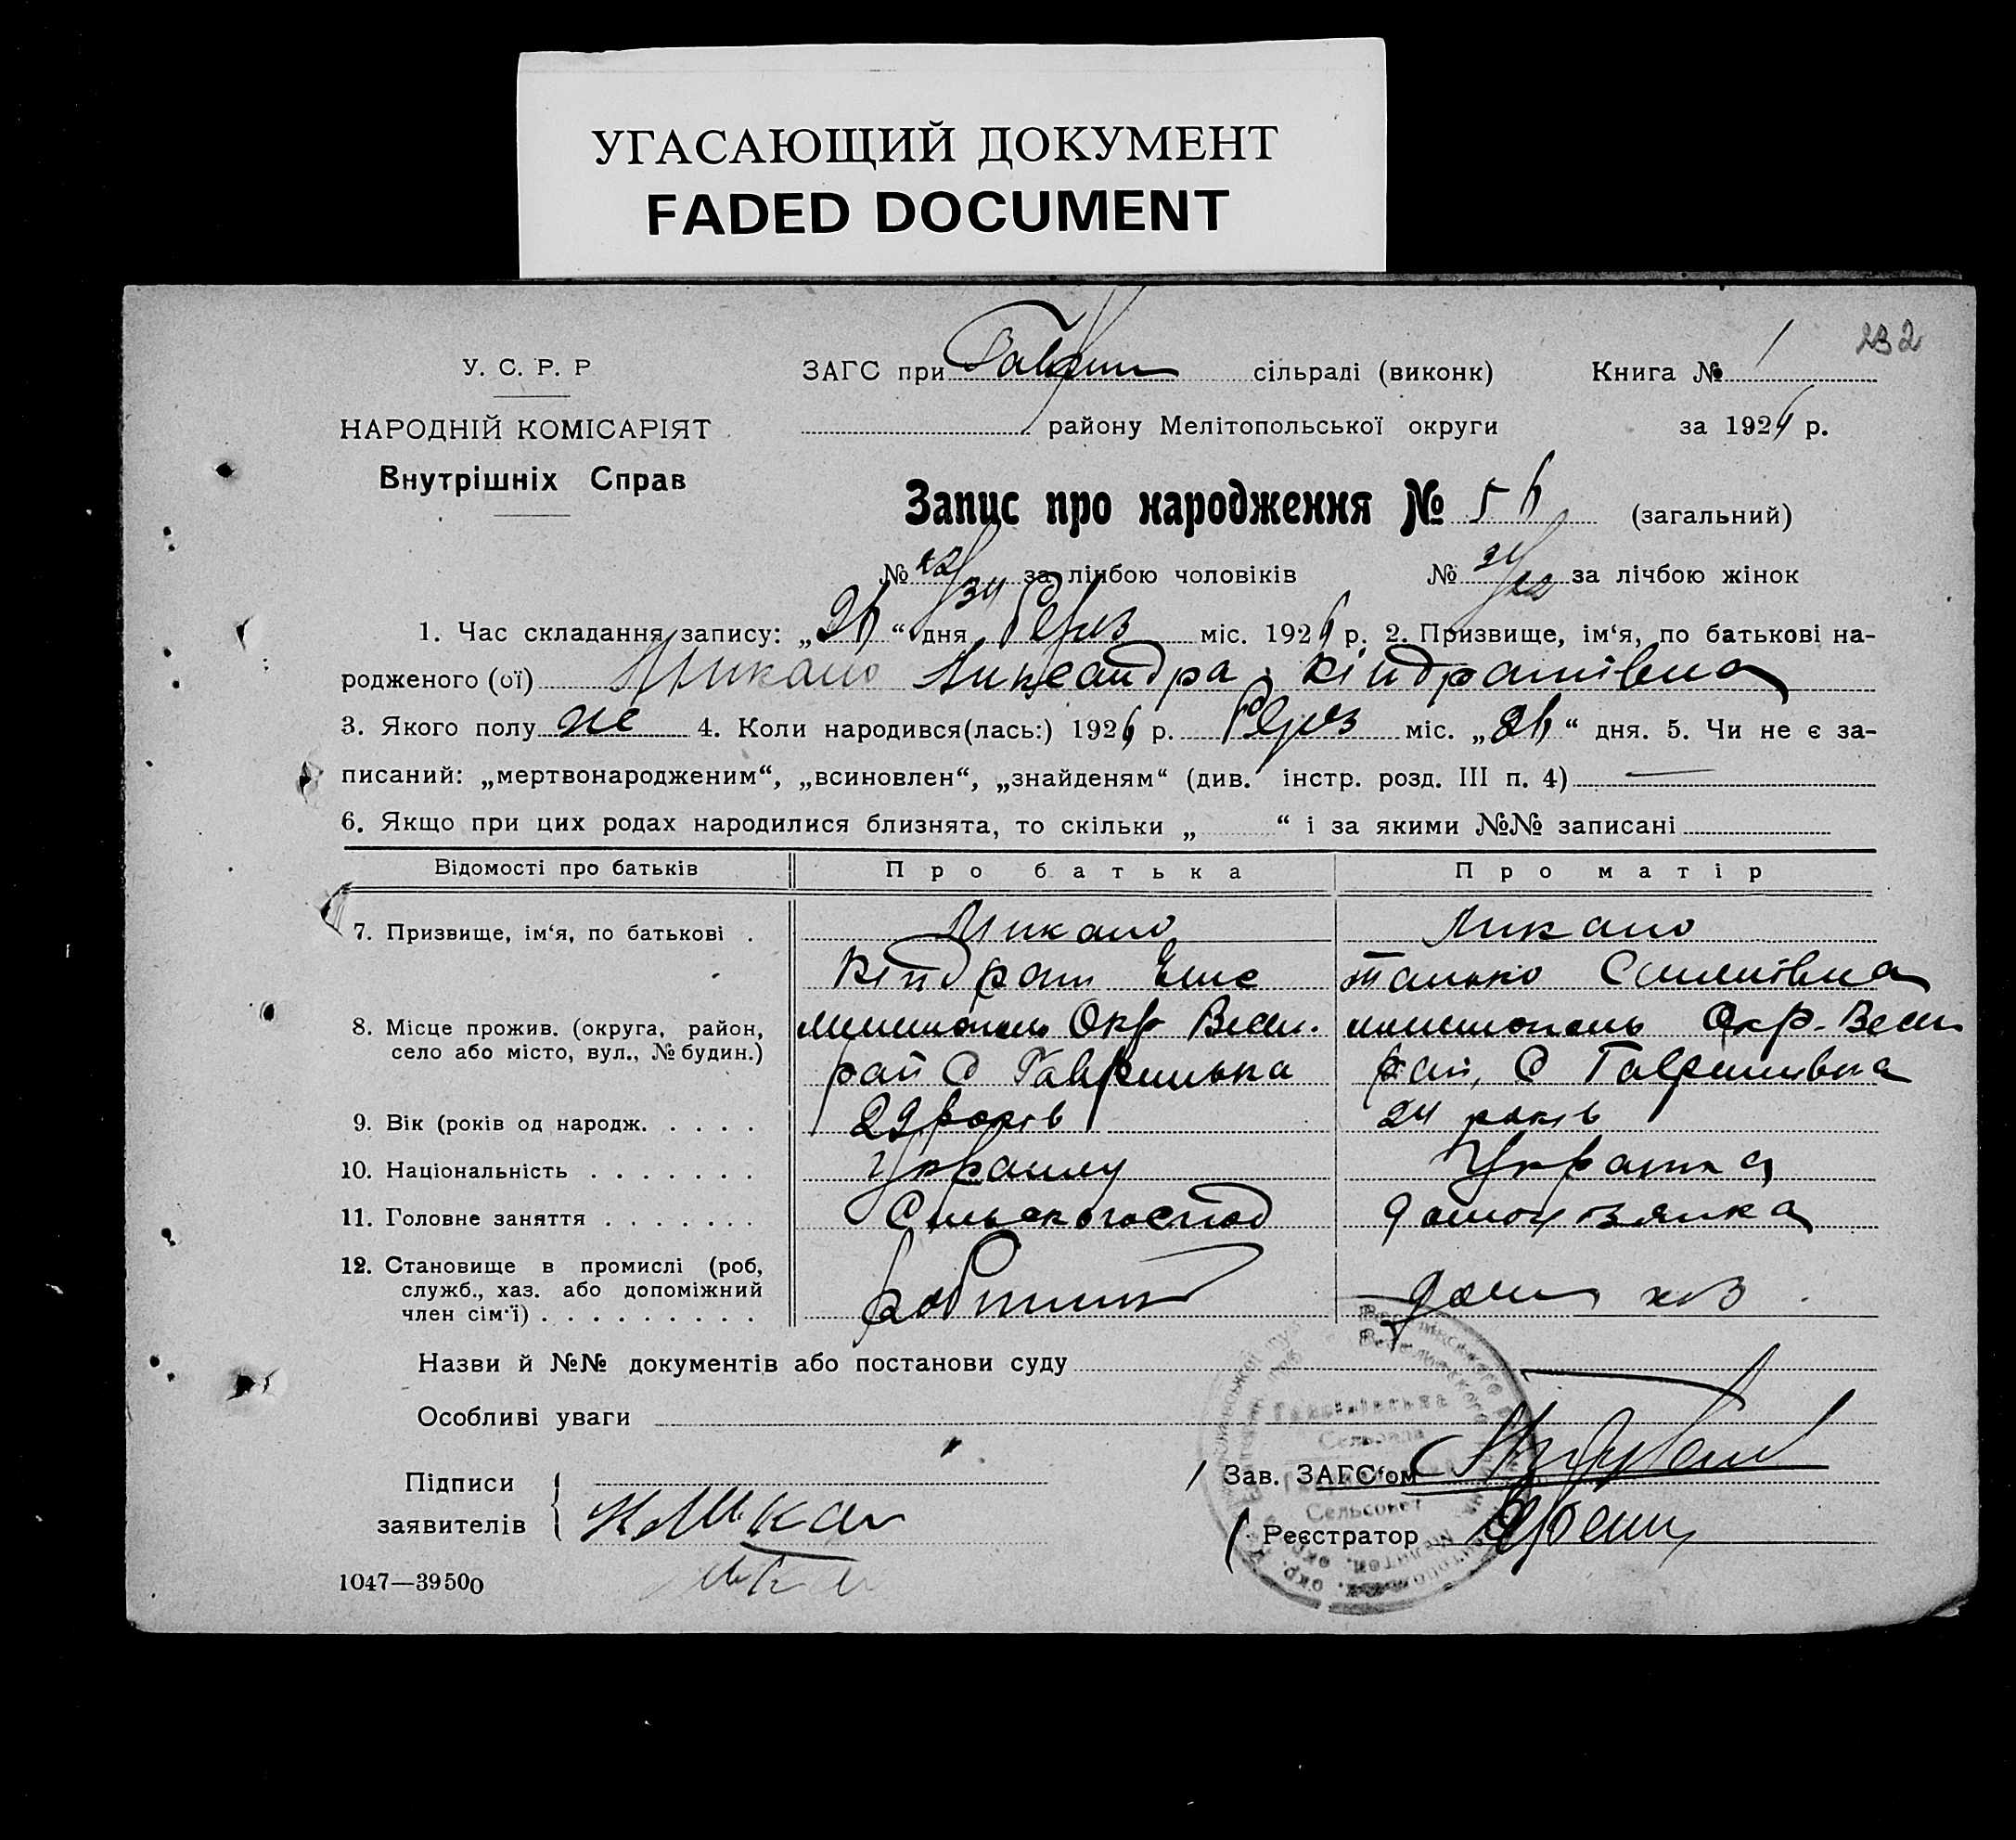 УГАСАЮЩИЙ ДОКУМЕНТ
FADED DOCUMENT
232
У. С. Р. Р
НАРОДНІЙ КОМІСАРІЯТ
Внутрішніх Справ
ЗАГС при Гаврил сільраді (виконк) Книга № 1
району Мелітопольської округи за 1926 р.
Запис про народження № 56 (загальний)
№ за лічбою чоловіків № за лічбою жінок
1. Час складання запису: „26“ дня Берез міс. 1926 р. 2. Призвище, ім‘я, по батькові на-
родженого (ої) Микало Александра Кіндратівна
3. Якого полу же 4. Коли народився(лась:) 1926 р. Берез міс. „26“ дня. 5. Чи не є за-
писаний: „мертвонародженим“, „всиновлен“, „знайденям“ (див. інстр. розд. III п. 4)
6. Якщо при цих родах народилися близнята, то скільки „ “ і за якими №№ записані
Відомості про батьків Про батька Про матір
7. Призвище, ім‘я, по батькові . Микало Микало
Кіндрат
8. Місце прожив. (округа, район, Окр Весел. Окр. Весел
село або місто, вул., № будин.) рай С Гаврилівка рай, С Гаврилівка
9. Вік (років од народж. . . . . 29 років 24 років
10. Національність . . . . . . .
11. Головне заняття . . . . . . . Сільскогоспод
12. Становище в промислі (роб,
служб., хаз. або допоміжний
член сім‘ї) . . . . . . . . . робітник дом хоз
Назви й №№ документів або постанови суду
Особливі уваги
Підписи
заявителів
Зав. ЗАГС‘ом
Реєстратор
Сельрада
Сельсовет
1047—39500